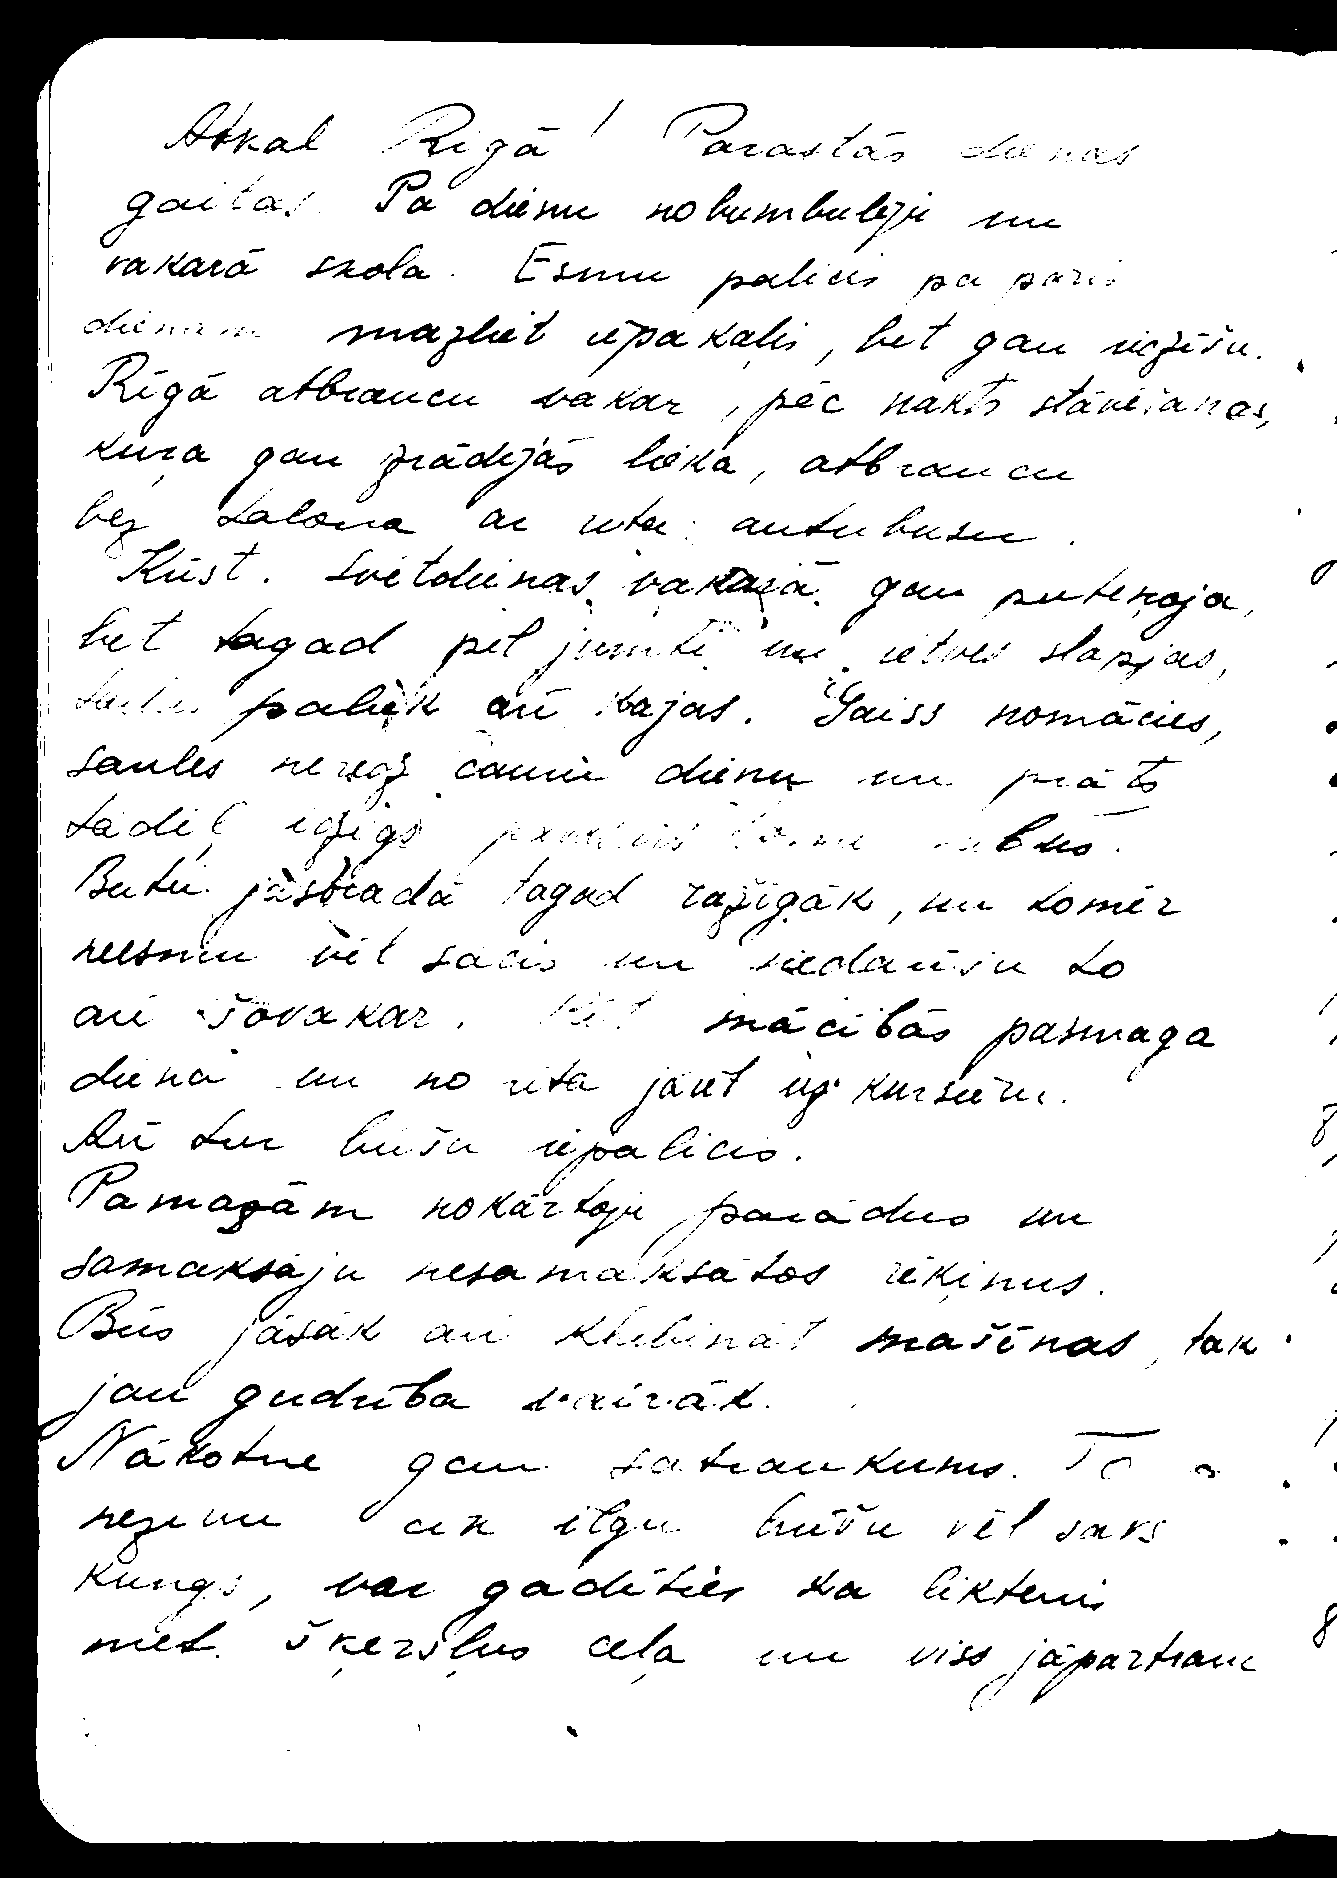 Atkal Rīgā! Parastās dienas
gaitas. Pa dienu nobumbulēju un
vakarā skola. Esmu palicis pa pāris
dienām mazliet iepakaļis, bet gan iedzīšu.
Rīgā atbraucu vakar, pēc nakts stāvēšanas,
kura gan izrādījās lieka, atbraucu
bez talona ar rīta autubusu.
Kūst. Svētdienas vakarā gan puteņoja,
bet tagad pil jumti un ietves slapjas,
paliek arī kajas. Gaiss nomācies,
saules neredz cauru dienu un prāts
tādēļ īdzīgs
Butu jāstrādā tagad ražīgāk, un tomēr
neesmu vēl sācis un nedarīšu to
arī šovakar. mācibās pasmaga
diena un no rīta jāiet uz kursiem.
Arī tur būšu iepalicis.
Pamazām nokārtoju parādus un
samaksāju nesamaksātos rēķinus.
Būs jāsāk arī klabināt mašīnas, tak
jau gudrība vairāk.
Nākotne gan satraukums.
nezinu cik ilgu būšu vēl savs
kungs, var gadīties ka liktenis
met šķēršļus ceļa un viss jāpārtrauc